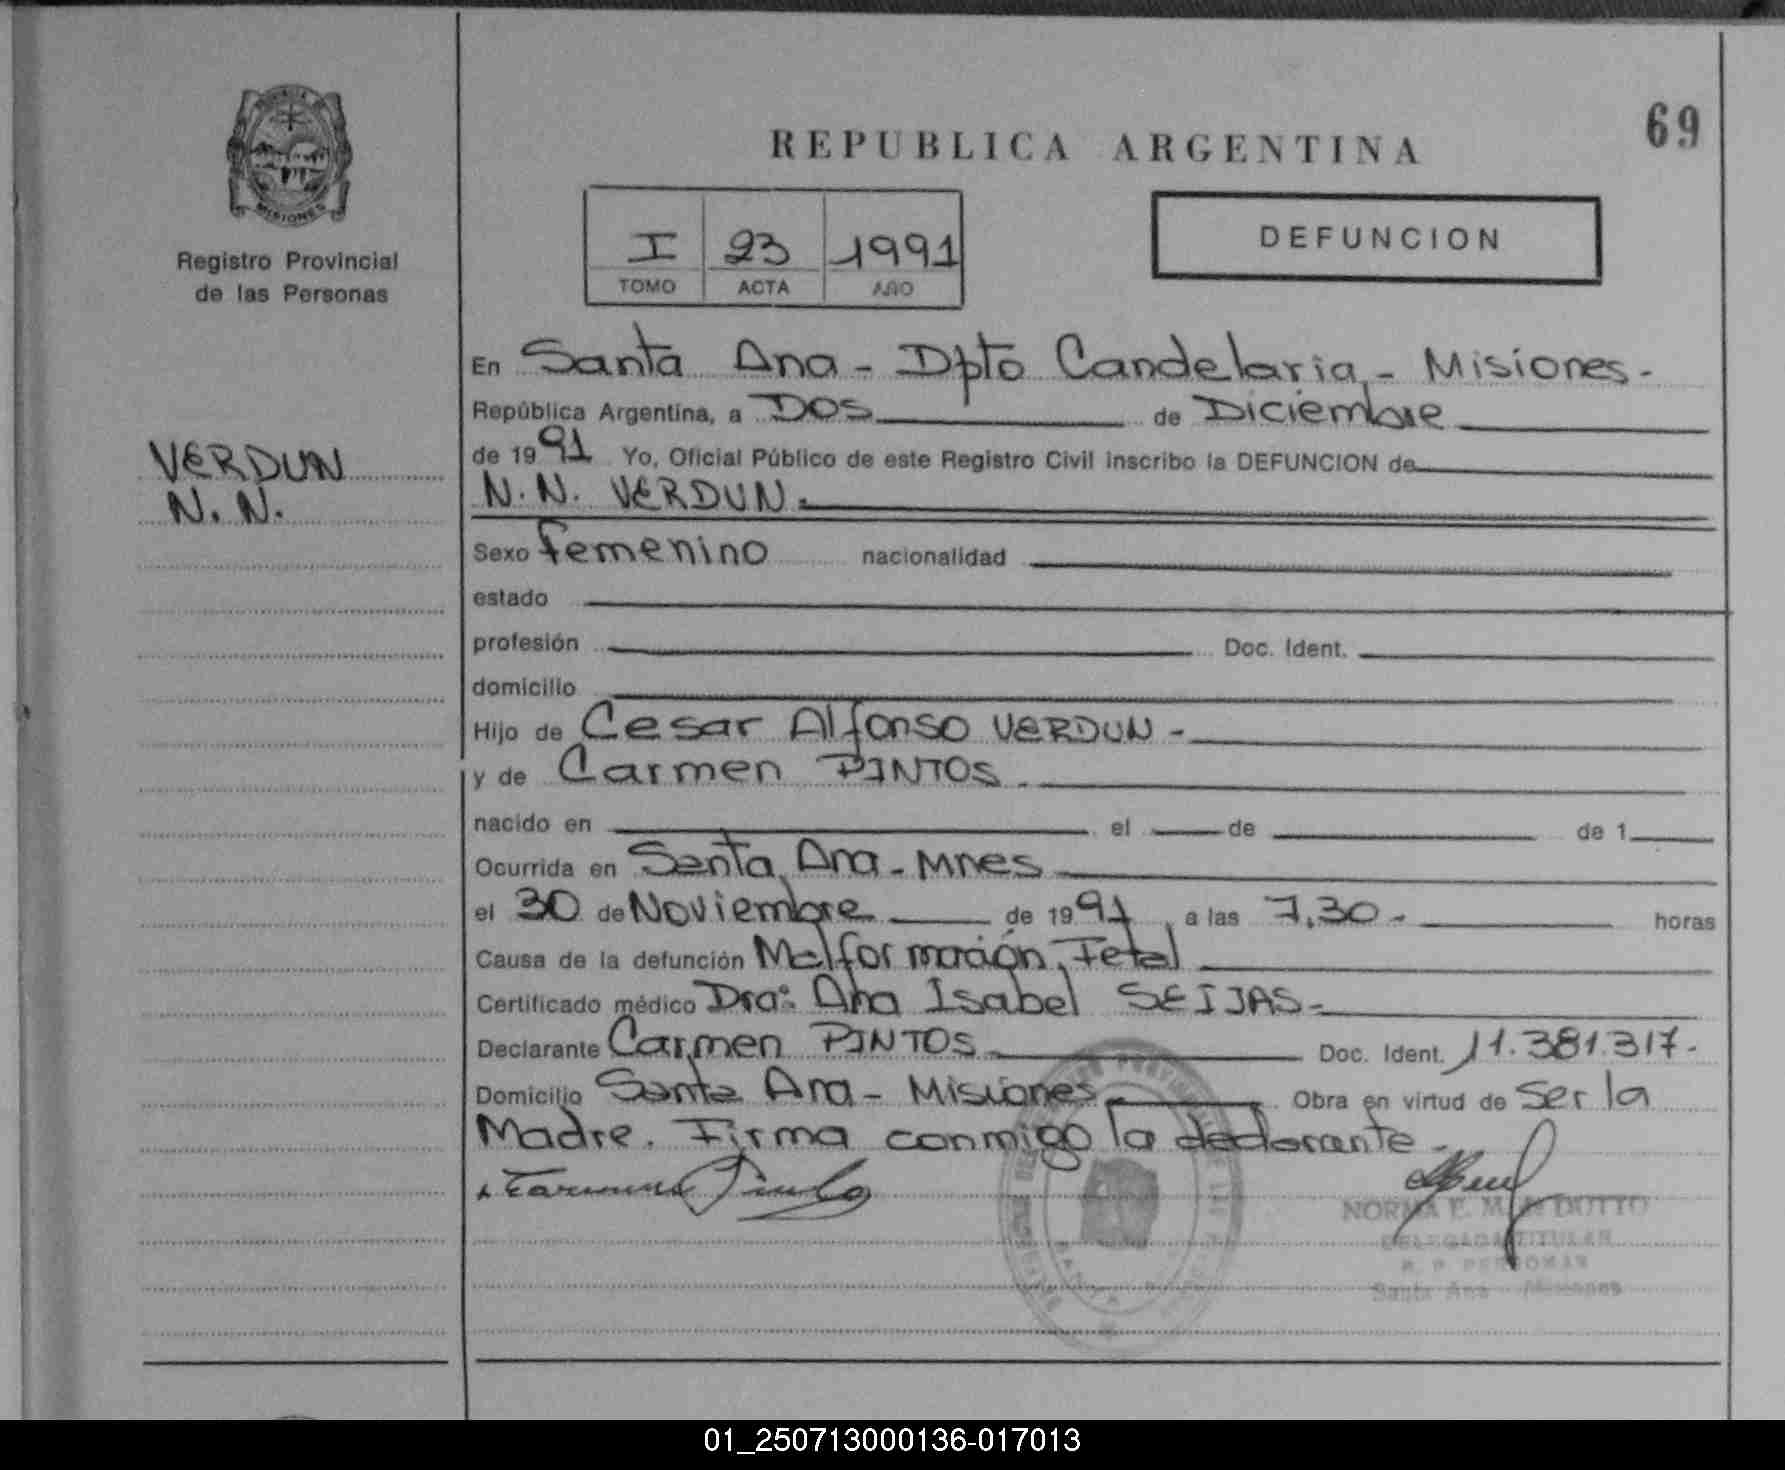 69
REPUBLICA ARGENTINA
MISIONES
Registro Provincial
de las Personas
I 23 1991
TOMO ACTA AÑO
DEFUNCION
VERDUN
N. N.
En Santa Ana - Dpto Candelaria - Misiones -
República Argentina, a DOS de Diciembre
de 1991 Yo, Oficial Público de este Registro Civil inscribo la DEFUNCION de
N. N. VERDUN.
Sexo Femenino nacionalidad
estado
profesión Doc. Ident.
domicilio
Hijo de Cesar Alfonso VERDUN -
y de Carmen PINTOS
nacido en el de de 1
Ocurrida en Santa Ana - Mnes
el 30 de Noviembre de 1991, a las 7,30 - horas
Causa de la defunción Malformación Fetal
Certificado médico Dra: Ana Isabel SEIJAS -
Declarante Carmen PINTOS Doc. Ident. 11.381.317 -
Domicilio Santa Ana - Misiones - Obra en virtud de Ser la
Madre. Firma conmigo la declarante -
NORMA E. M. DUTTO
DELEGADA TITULAR
R. P. PERSONAS
Santa Ana Misiones
01_250713000136-017013